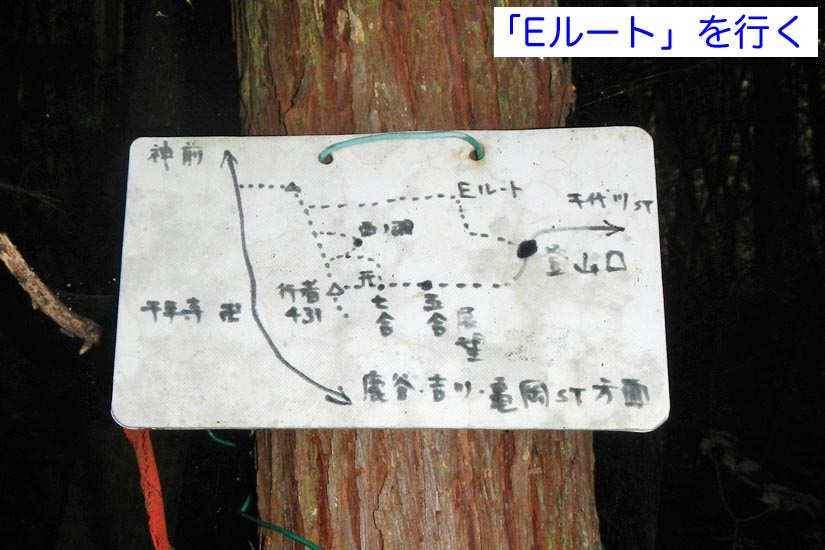 「Eルート」を行く
神前
Eルート
千代川ST
登山口
行者
431
七合
五合
展望
千手寺 卍
鹿谷・吉川・亀岡ST方面